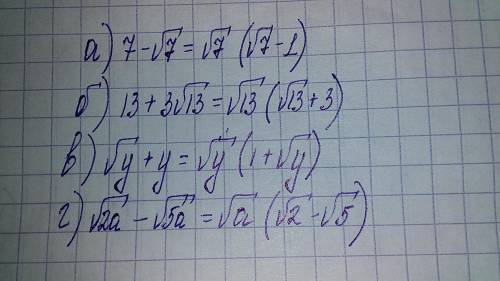 а) 7 - √7 = √7 (√7 - 1)
б) 13 + 3√13 = √13 (√13 + 3)
в) √y + y = √y (1 + √y)
г) √2a - √5a = √a (√2 - √5)